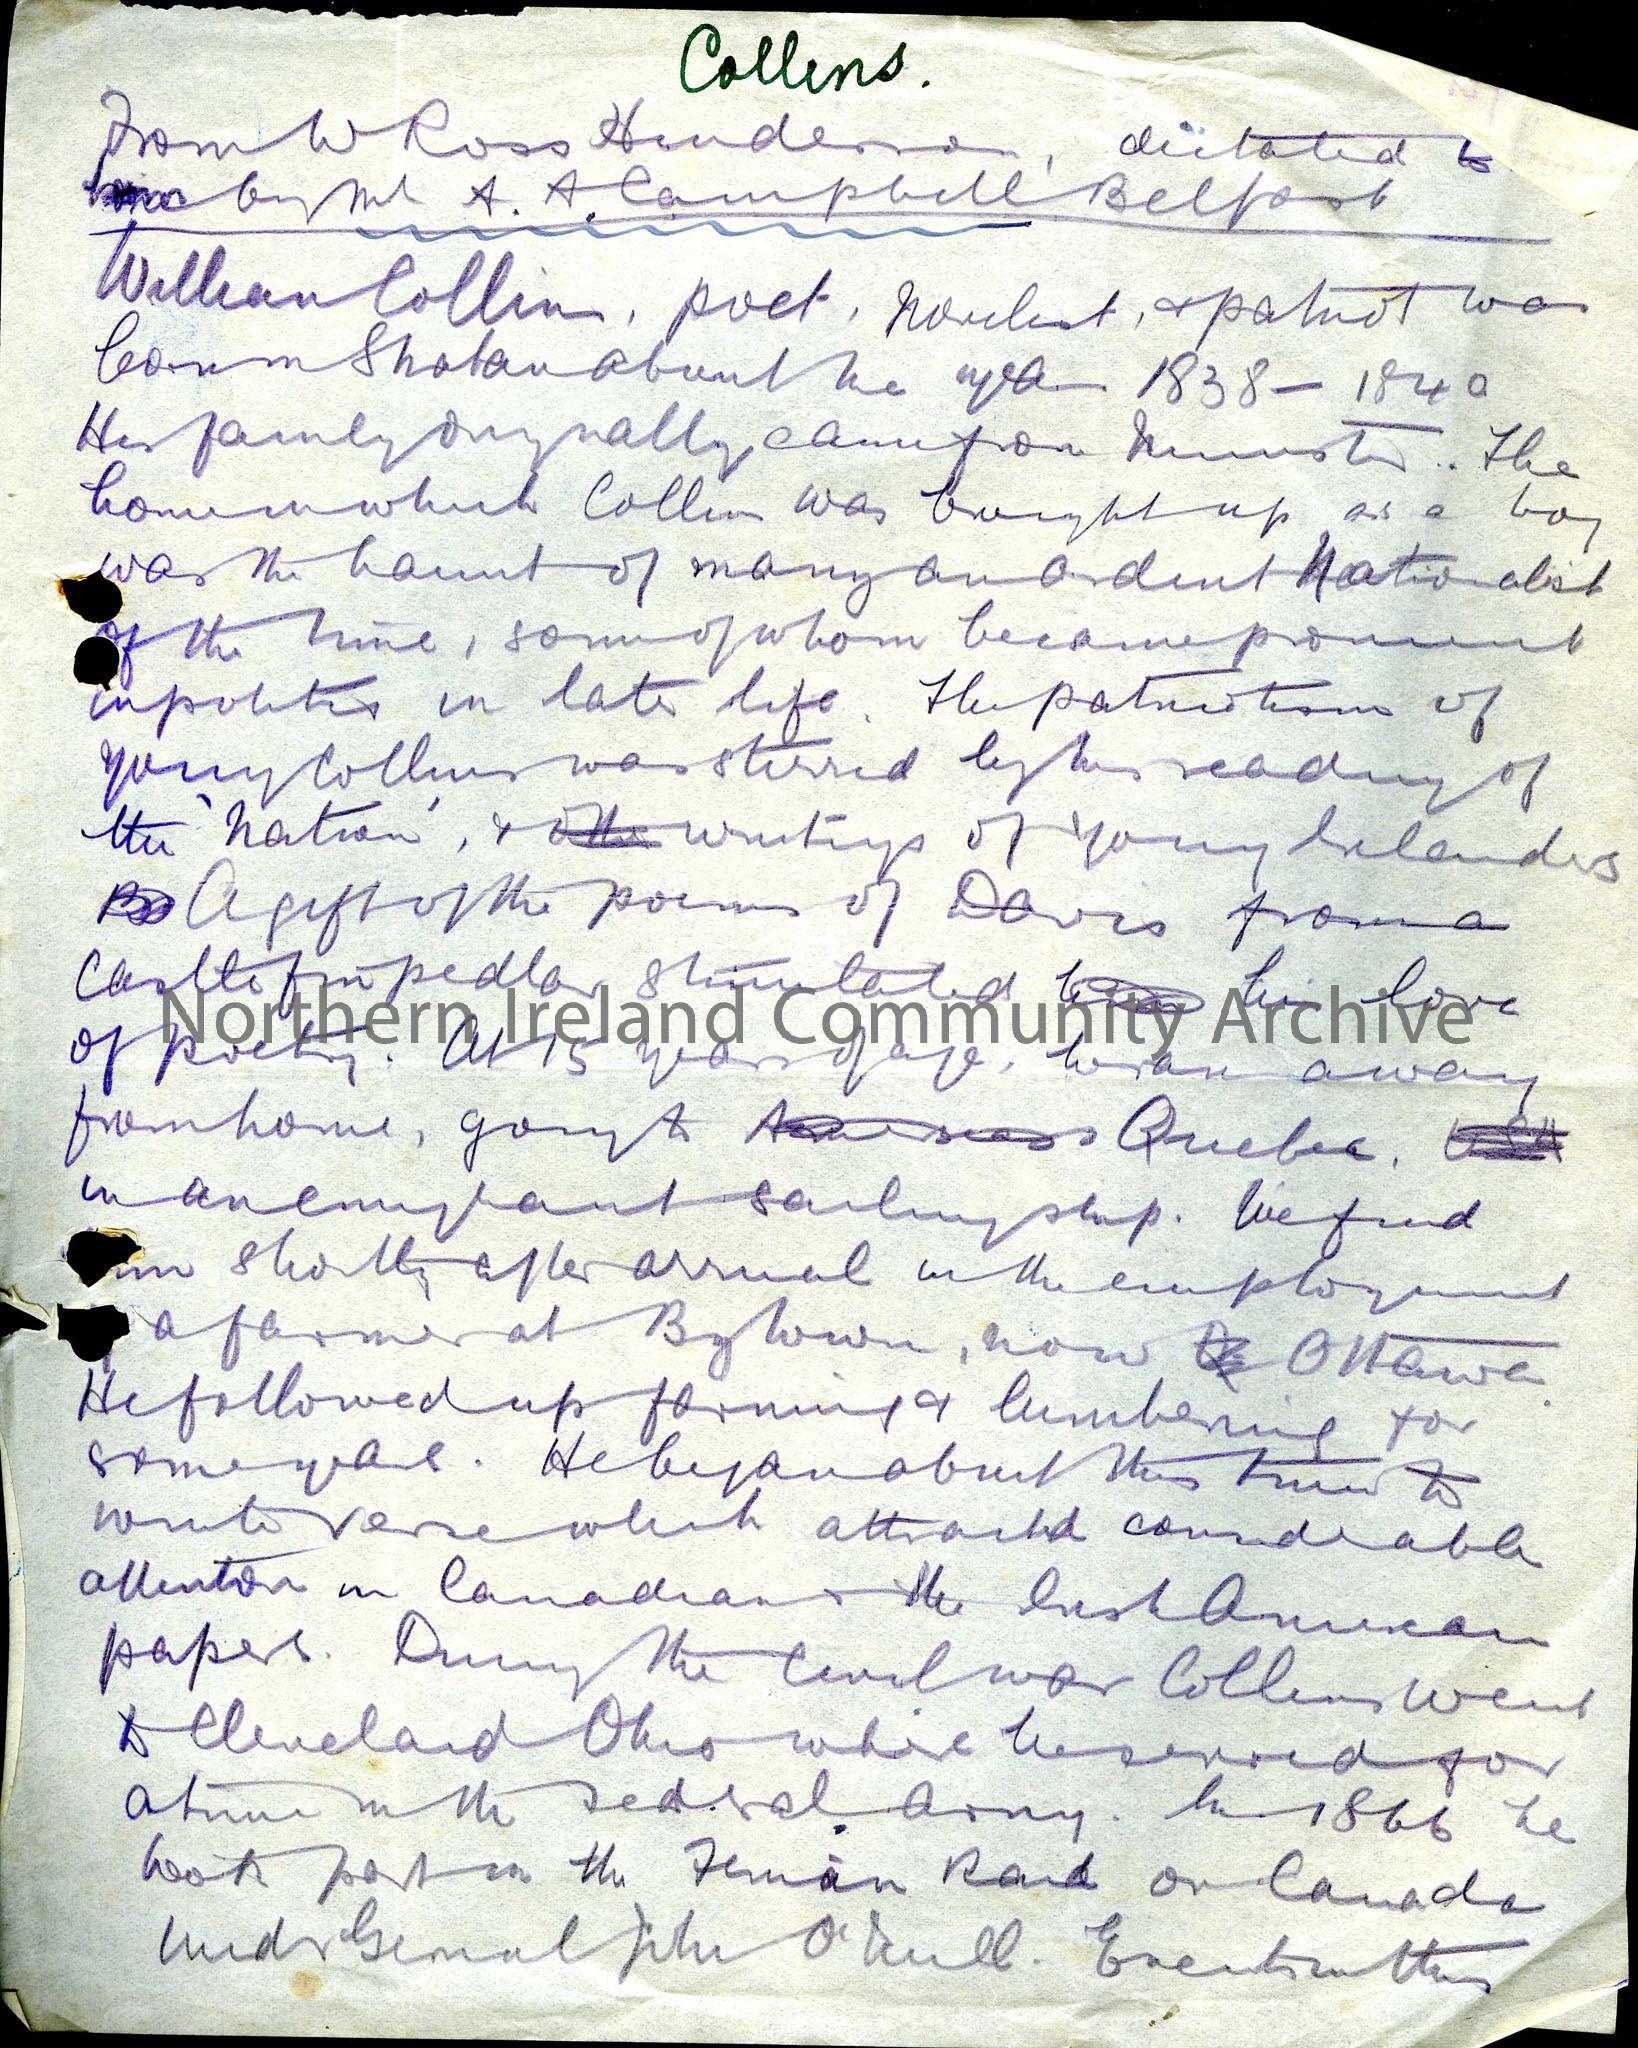 Collins.
From W Ross Henderson, dictated to
by Mr A. A. Campbell Belfast
William Collins, poet, Novelist, & patriot was
born in Strabane about the year 1838 – 1840
His family originally came from Munster. The
home in which Collins was brought up as a boy
was the haunt of many an ardent Nationalist
of the time, some of whom became prominent
in politics in later life. The patriotism of
young Collins was stirred by his reading of
the 'Nation', & other writings of Young Irelanders
A gift of the poems of Davis from a
Castlefin pedlar stimulated his love
of poetry. At 15 years of age, he ran away
from home, going to Quebec,
in an emigrant sailing ship. We find
him shortly after arrival in the employment
a farmer at Bytown, now Ottawa.
He followed up farming & lumbering for
some years. He began about this time to
write verse which attracted considerable
attention in Canadian & the Irish American
papers. During the Civil war Collins went
to Cleveland Ohio where he served for
a time in the Federal army. In 1866 he
took part in the Fenian Raid on Canada
under General John O'Neill. Events in this
Northern Ireland Community Archive